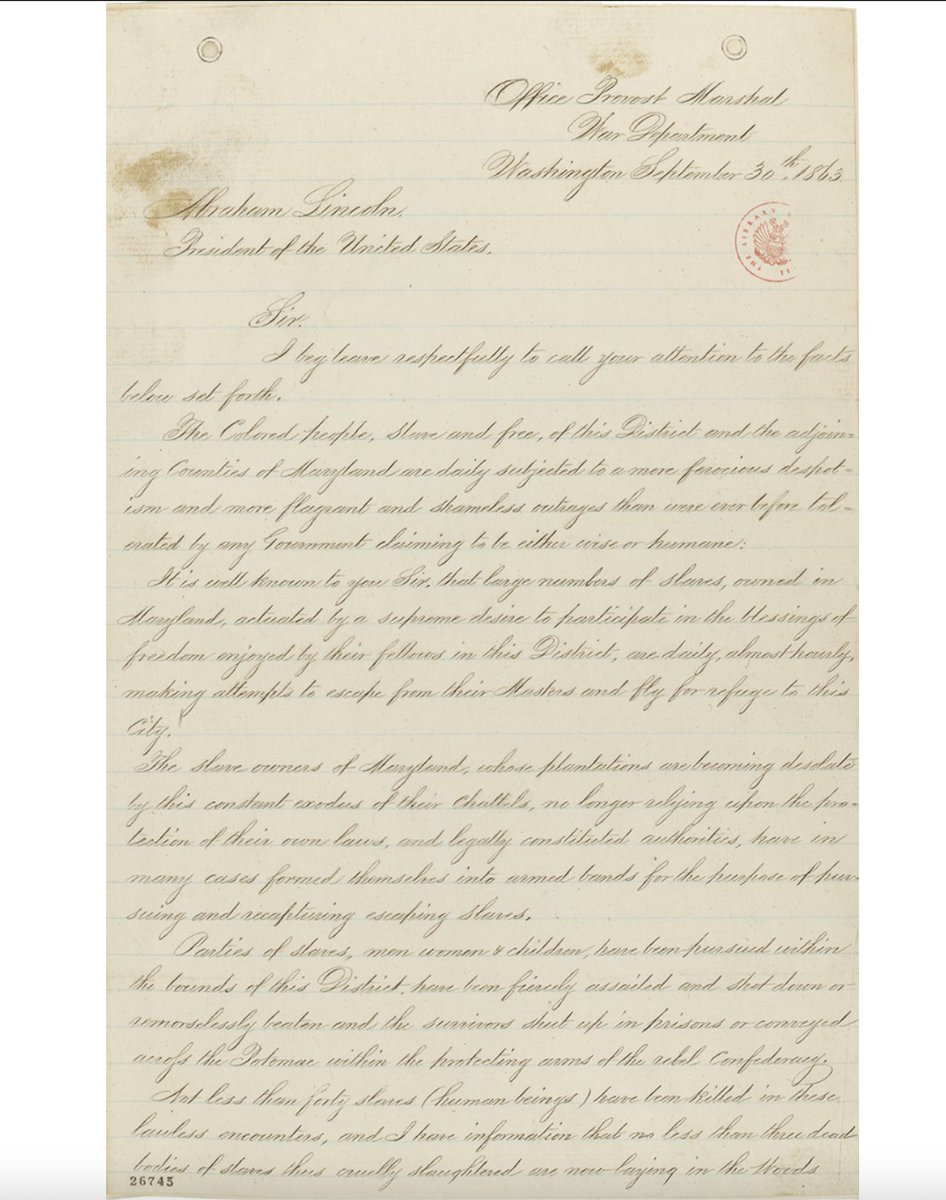 Office Provost Marshal
War Department
Washington September 30th, 1863.
Abraham Lincoln.
President of the United States.
THE LIBRARY
Sir.
I beg leave respectfully to call your attention to the facts
below set forth.
The Colored people, slave and free, of this District and the adjoin=
ing Counties of Maryland are daily subjected to a more ferocious despot=
ism and more flagrant and shameless outrages than were ever before tol=
erated by any Government claiming to be either wise or humane:
It is well known to you Sir, that large numbers of slaves, owned in
Maryland, actuated by a supreme desire to participate in the blessings of
freedom enjoyed by their fellows in this District, are daily, almost hourly,
making attempts to escape from their Masters and fly for refuge to this
City.
The slave owners of Maryland, whose plantations are becoming desolate
by this constant exodus of their Chattels, no longer relying upon the pro=
tection of their own laws, and legally constituted authorities, have in
many cases formed themselves into armed bands for the purpose of pur=
suing and recapturing escaping slaves.
Parties of slaves, men women & children, have been pursued within
the bounds of this District, have been fiercely assailed and shot down or
remorselessly beaten and the survivors shut up in prisons or conveyed
across the Potomac within the protecting arms of the rebel Confederacy.
Not less than forty slaves (human beings) have been killed in these
lawless encounters, and I have information that no less than three dead
bodies of slaves thus cruelly slaughtered are now laying in the Woods
26745